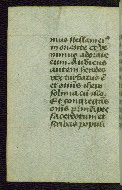 mus stellam ei'
in oriente et ve
nimus adorare
eum. Audiens
autem herodes
rex turbatus e'
et omis ihero
solima cu' illo.
Et congregans
omis principes
sacerdotum et
scribas populi